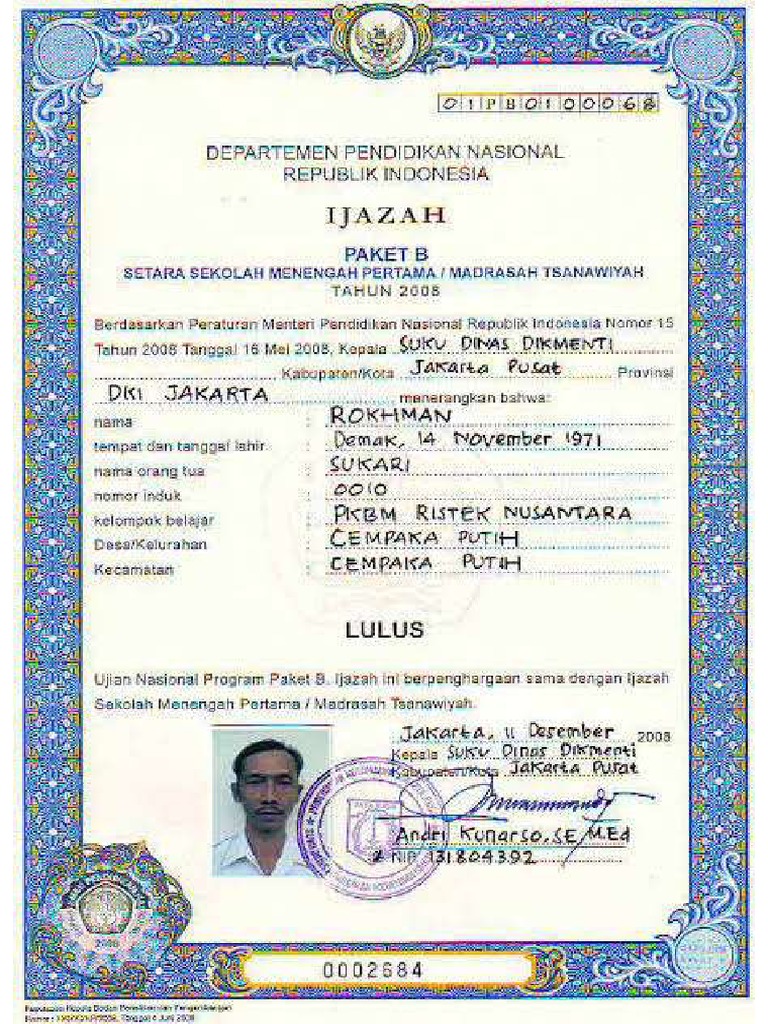 01PB0100068
DEPARTEMEN PENDIDIKAN NASIONAL
REPUBLIK INDONESIA
IJAZAH
PAKET B
SETARA SEKOLAH MENENGAH PERTAMA / MADRASAH TSANAWIYAH
TAHUN 2008
Berdasarkan Peraturan Menteri Pendidikan Nasional Republik Indonesia Nomor 15
Tahun 2008 Tanggal 16 Mei 2008, Kepala SUKU DINAS DIKMENTI
Kabupaten/Kota Jakarta Pusat Provinsi
DKI JAKARTA menerangkan bahwa:
nama : ROKHMAN
tempat dan tanggal lahir : Demak, 14 November 1971
nama orang tua : SUKARI
nomor induk : 0010
kelompok belajar : PKBM RISTEK NUSANTARA
Desa/Kelurahan : CEMPAKA PUTIH
Kecamatan : CEMPAKA PUTIH
LULUS
Ujian Nasional Program Paket B. Ijazah ini berpenghargaan sama dengan Ijazah
Sekolah Menengah Pertama / Madrasah Tsanawiyah.
Jakarta, 11 Desember 2008
Kepala Suku Dinas Dikmenti
Kabupaten/Kota Jakarta Pusat
Andri Kunarso, SE, M.Ed
NIP 131804392
2008
0002684